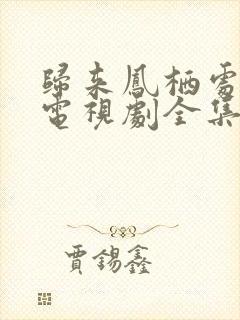 歸来鳳栖處
電視劇全集
賈錫鑫